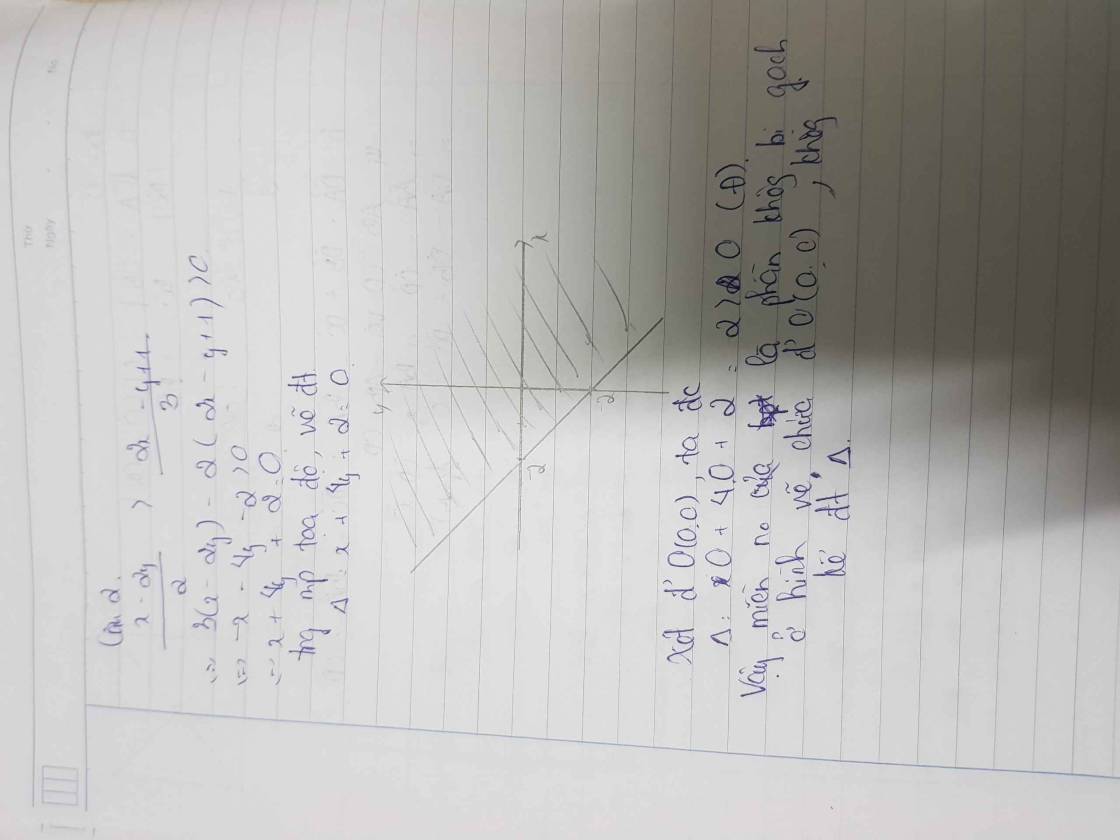 Thứ
Ngày
No.
Câu 2.
x - 2y / 2 > 2x - y + 1 / 3
(=) 3(x - 2y) - 2(2x - y + 1) > 0
(=) -x - 4y - 2 > 0
(=) x + 4y + 2 = 0
trg mp tọa độ, vẽ đt
Δ : x + 4y + 2 = 0
y
x
-2
2
Xét đ' O(0,0), ta đc
Δ: 0 + 4.0 + 2 = 2 > 0 (Đ).
Vậy miền no của là phần không bị gạch
ở hình vẽ, chứa đ' O(0.0), không
kể đt Δ.